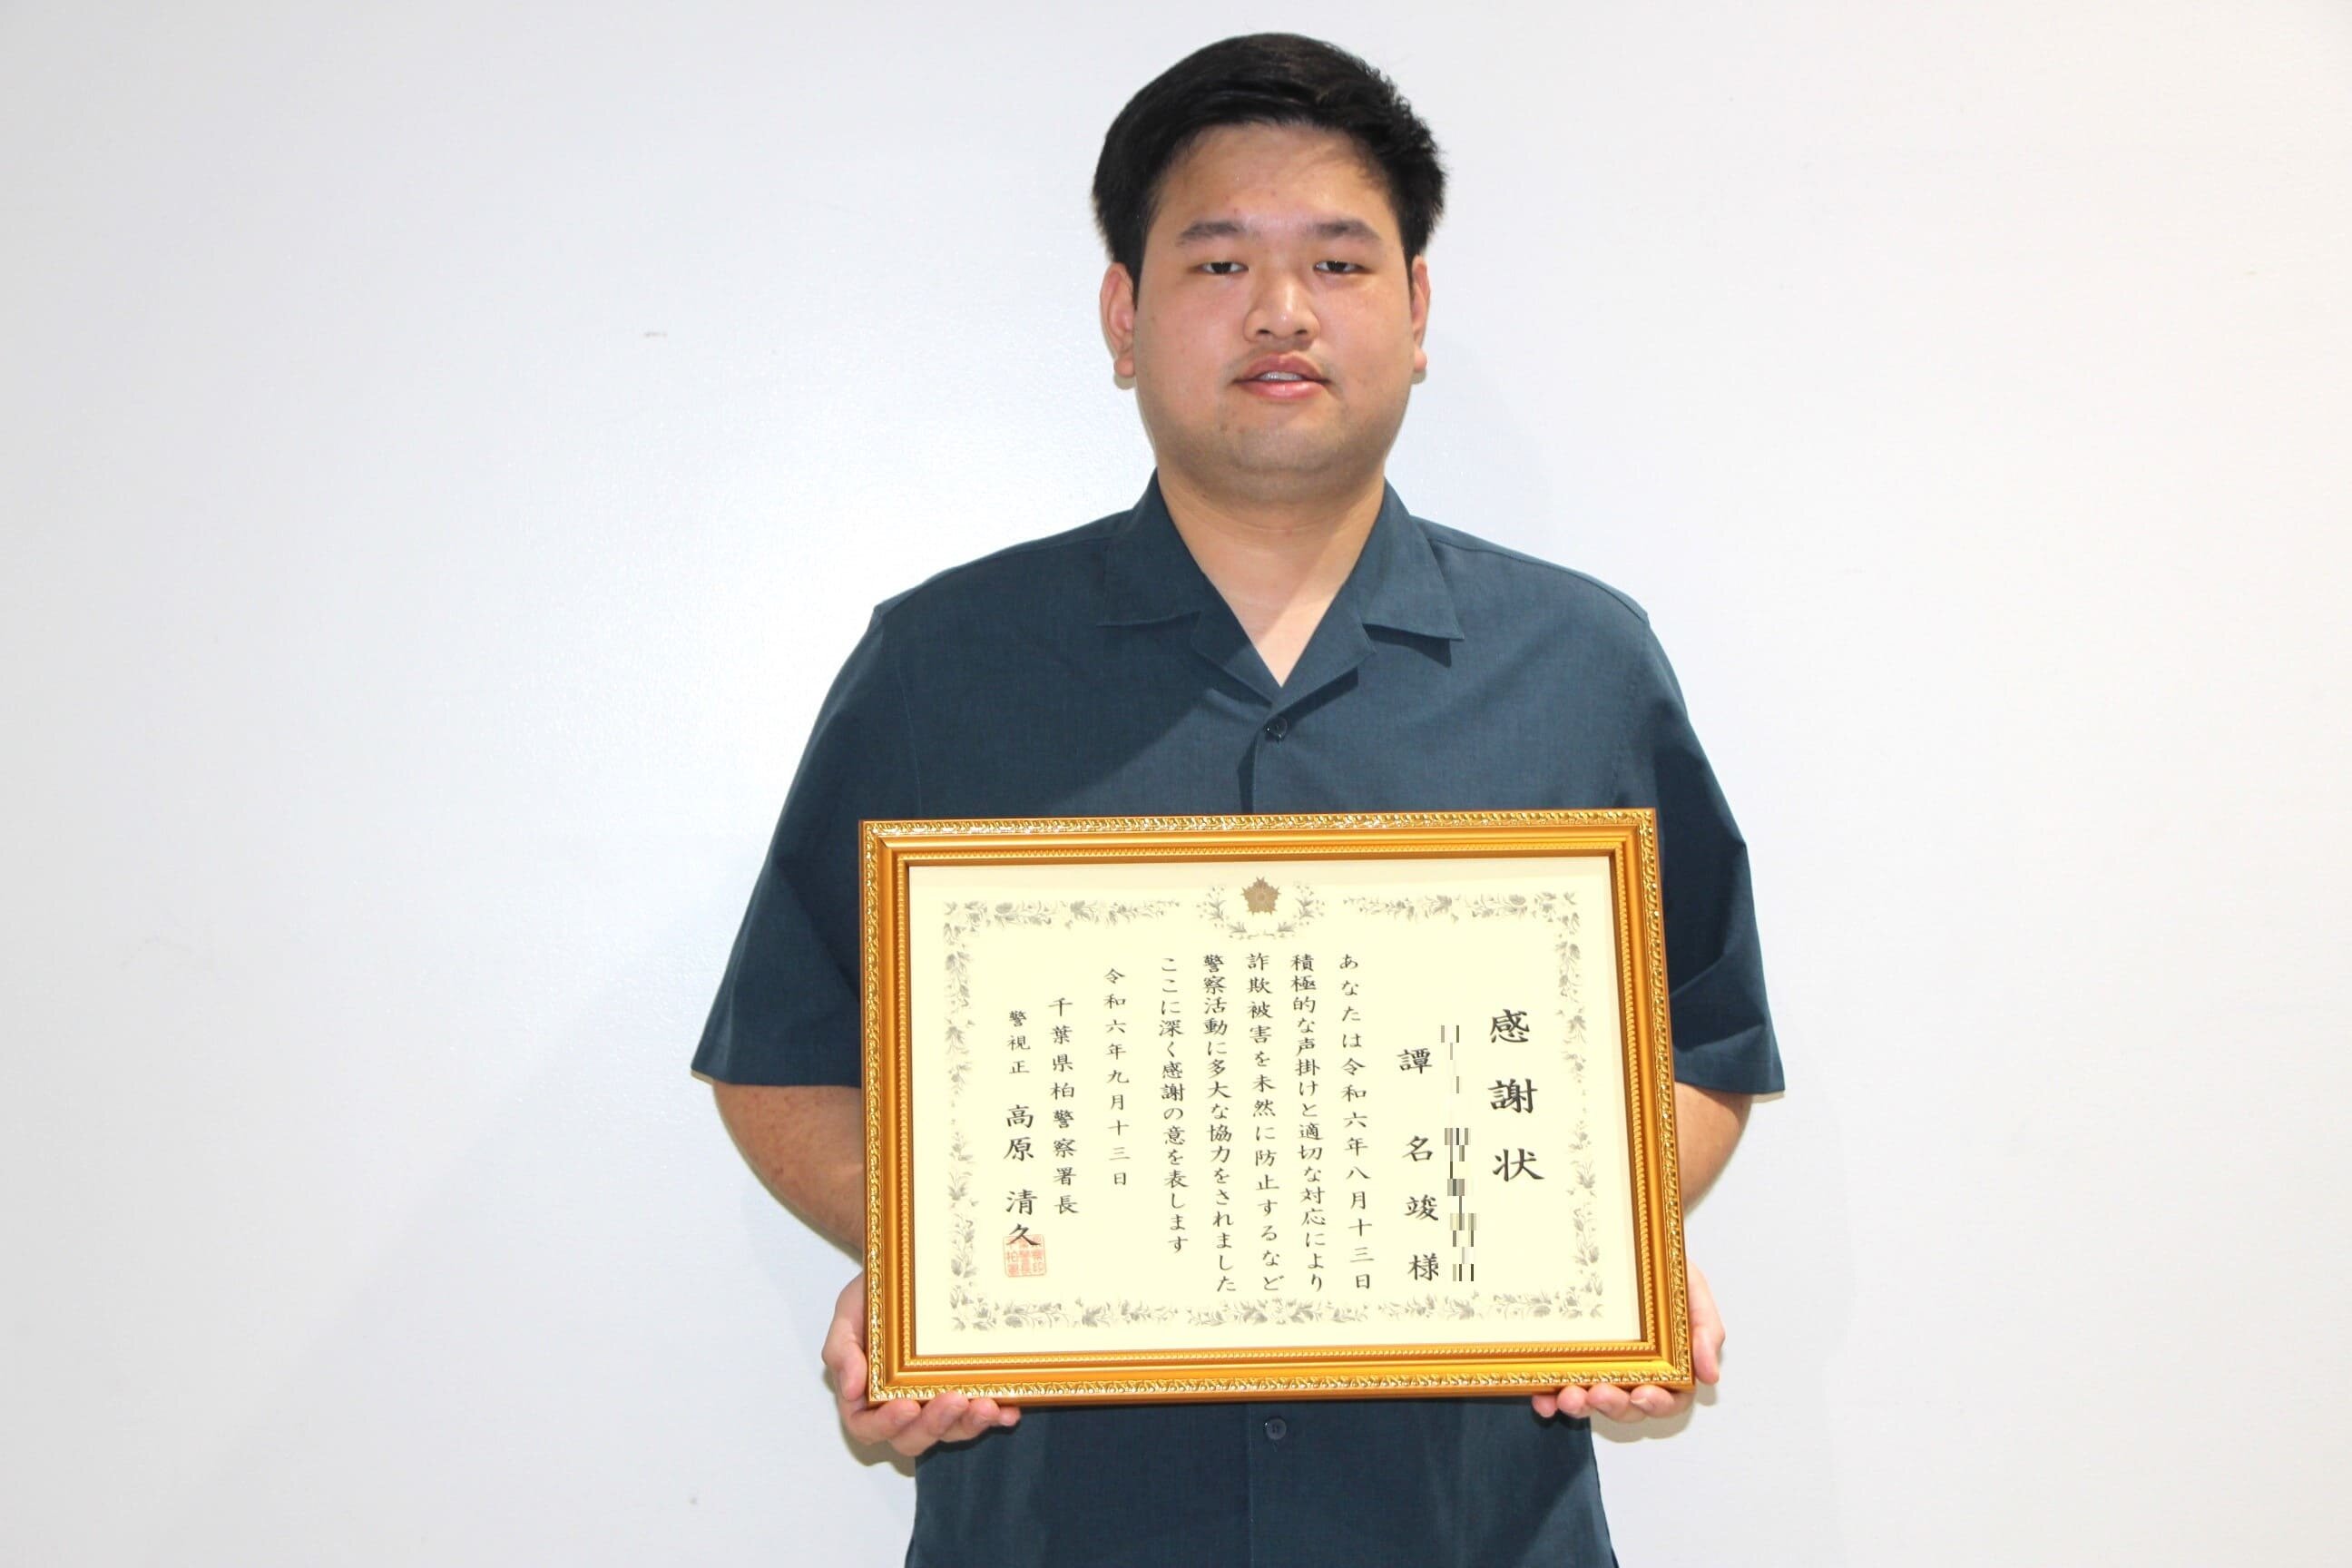 感謝状
譚名竣様
あなたは令和六年八月十三日
積極的な声掛けと適切な対応により
詐欺被害を未然に防止するなど
警察活動に多大な協力をされました
ここに深く感謝の意を表します
令和六年九月十三日
千葉県柏警察署長
警視正 高原清久